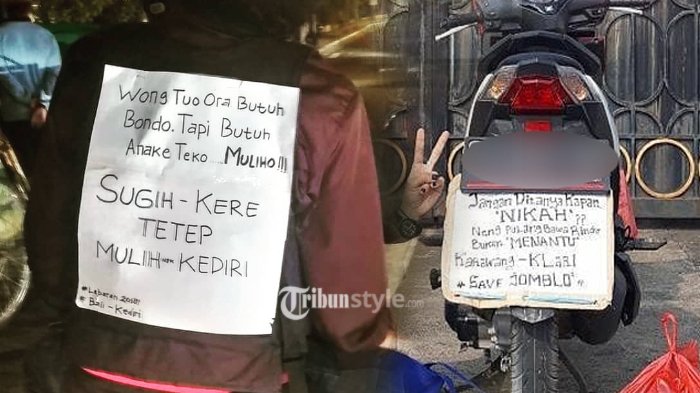 Wong Tuo Ora Butuh
Bondo. Tapi Butuh
Anake Teko.....Muliho!!!
SUGIH - KERE
TETEP
MULIH KEDIRI
# Lebaran 2018!
# Bali - Kediri
Tribunstyle.com
Jangan Ditanya Kapan
"NIKAH"??
Neng Pulang Bawa Rindu
Bukan "MENANTU"
Karawang - KLARI
# SAVE JOMBLO #